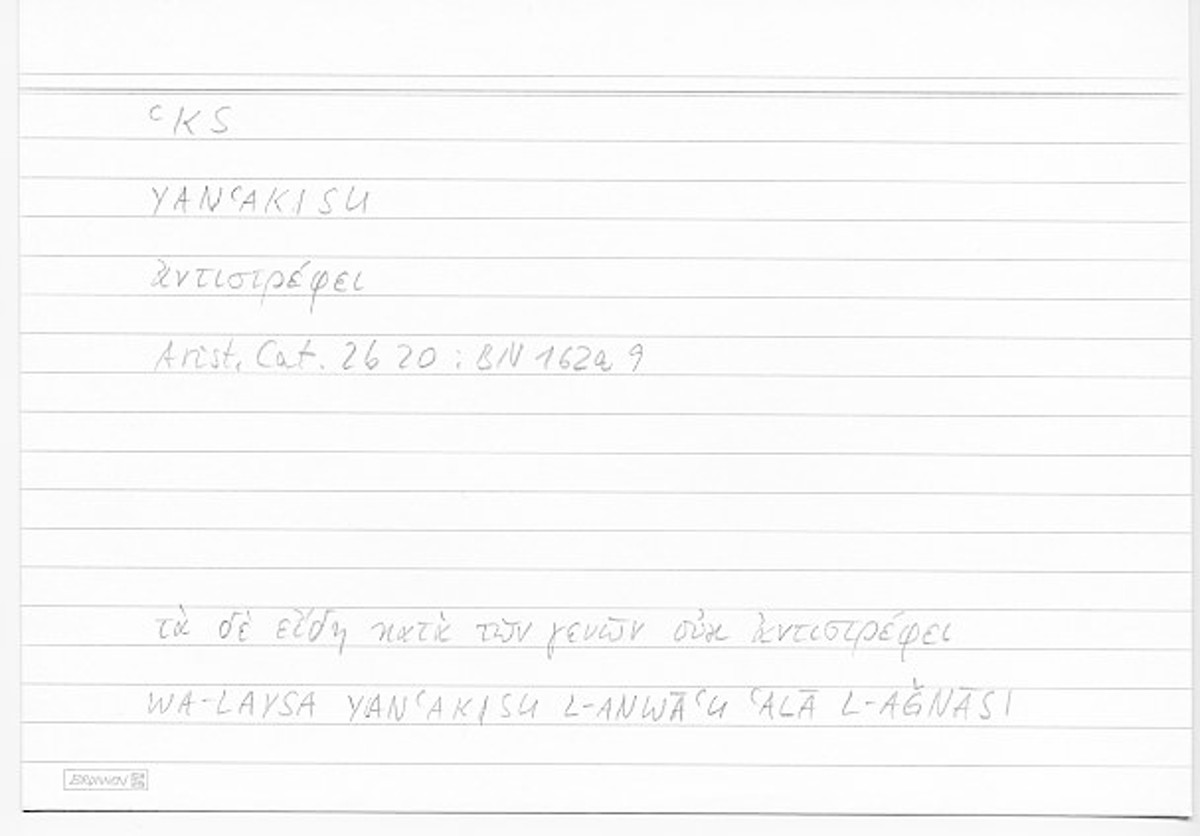 ʿKS
YANʿAKISU
ἀντιστρέφει
Arist. Cat. 2b 20 ; BN 162a 9
τὰ δὲ εἴδη κατὰ τῶν γενῶν οὐκ ἀντιστρέφει
WA-LAYSA YANʿAKISU L-ANWĀʿU ʿALĀ L-AǦNĀSI